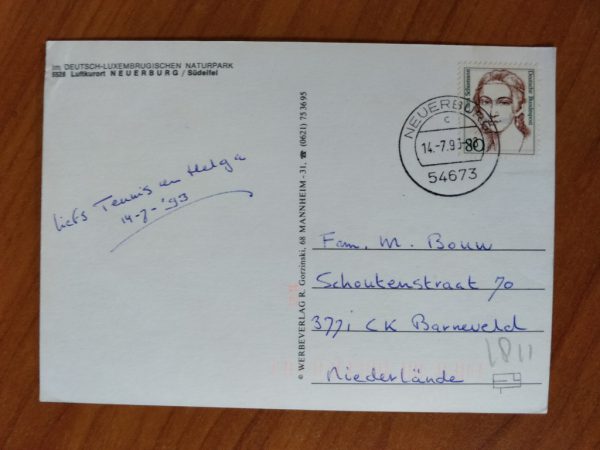 im DEUTSCH-LUXEMBRUGISCHEN NATURPARK
5528 Luftkurort NEUERBURG / Südeifel
liefs Tennis en Helga
14-7-'93
© WERBEVERLAG R. Gorzinski, 68 MANNHEIM-31, ☎ (0621) 75 36 95
Schumann
Deutsche Bundespost
80
NEUERBURG
c
14.-7.93
54673
Fam. M. Bouw
Schoutenstraat 70
3771 CK Barneveld
Niederlände
1811